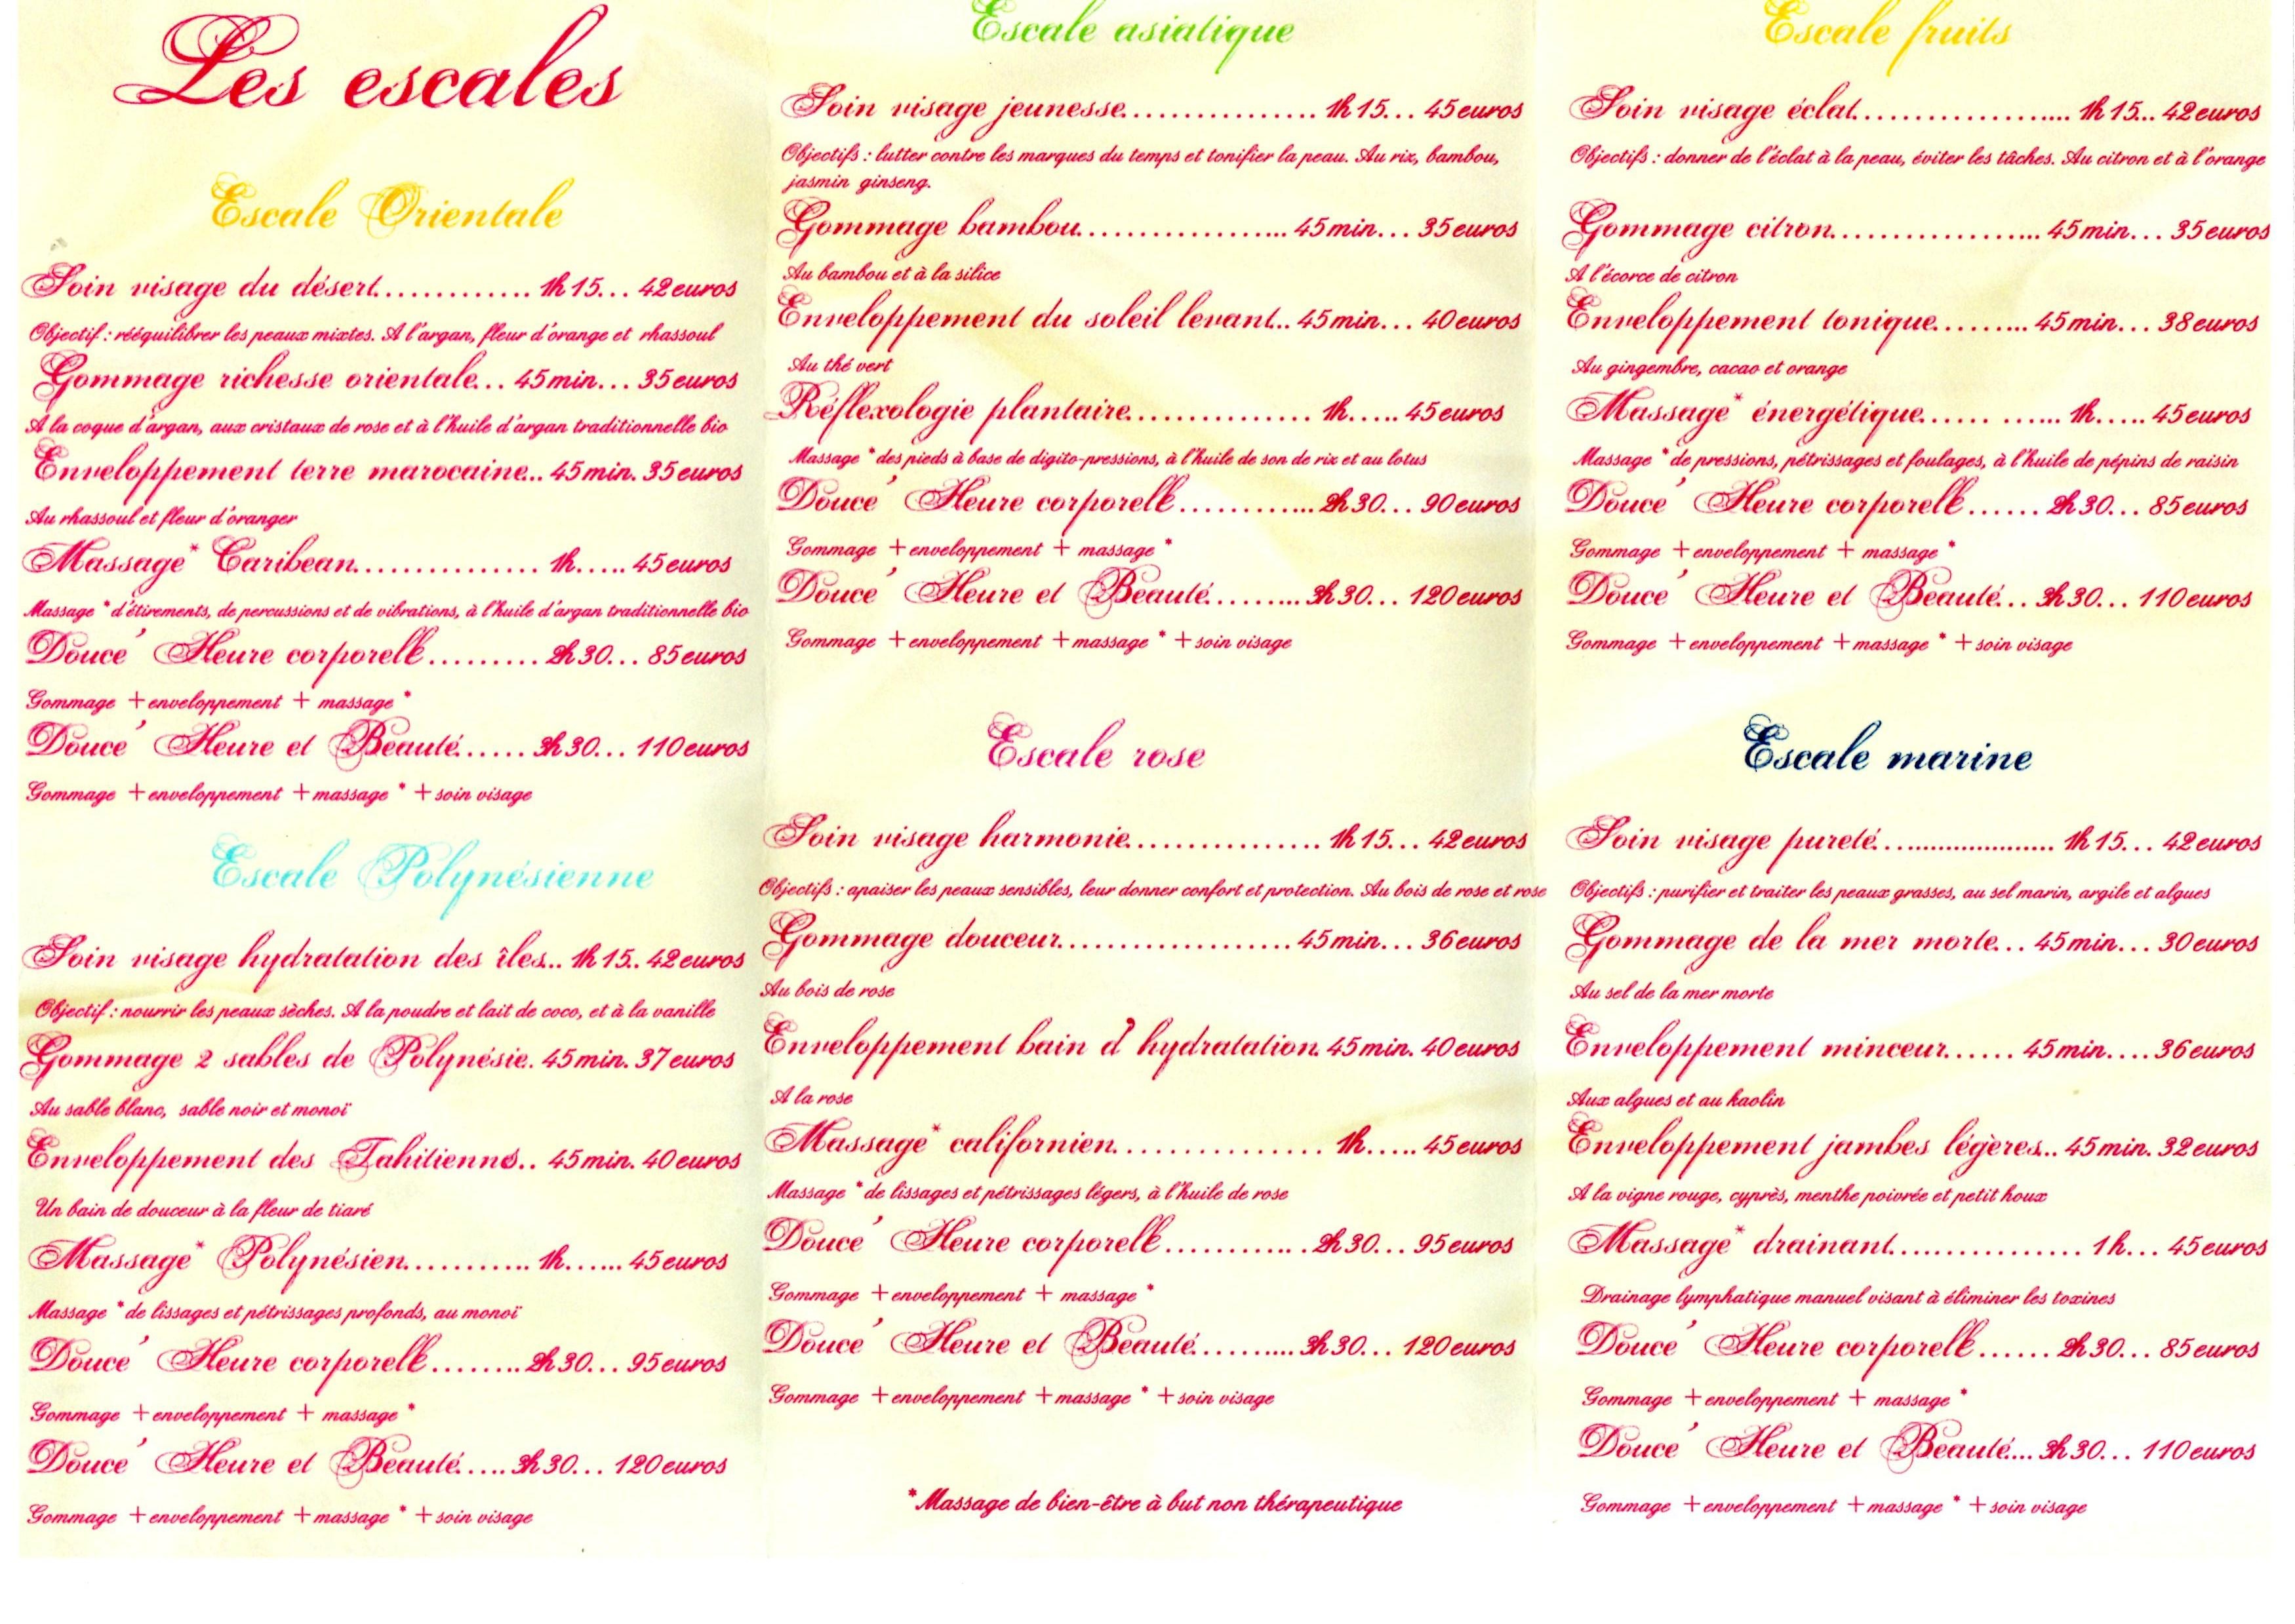 Les escales
Escale Orientale
Soin visage du désert............. 1h15... 42euros
Objectif : rééquilibrer les peaux mixtes. A l'argan, fleur d'orange et rhassoul
Gommage richesse orientale... 45min... 35euros
A la coque d'argan, aux cristaux de rose et à l'huile d'argan traditionnelle bio
Enveloppement terre marocaine... 45min. 35euros
Au rhassoul et fleur d'oranger
Massage* Caribean............... 1h..... 45euros
Massage * d'étirements, de percussions et de vibrations, à l'huile d'argan traditionnelle bio
Douce' Heure corporelle......... 2h30... 85euros
Gommage + enveloppement + massage *
Douce' Heure et Beauté...... 3h30... 110euros
Gommage + enveloppement + massage * + soin visage
Escale Polynésienne
Soin visage hydratation des îles... 1h15.. 42euros
Objectif : nourrir les peaux sèches. A la poudre et lait de coco, et à la vanille
Gommage 2 sables de Polynésie.. 45min. 37euros
Au sable blanc, sable noir et monoï
Enveloppement des Tahitiennes.. 45min. 40euros
Un bain de douceur à la fleur de tiaré
Massage* Polynésien........... 1h...... 45euros
Massage * de lissages et pétrissages profonds, au monoï
Douce' Heure corporelle........ 2h30... 95euros
Gommage + enveloppement + massage *
Douce' Heure et Beauté..... 3h30... 120euros
Gommage + enveloppement + massage * + soin visage
Escale asiatique
Soin visage jeunesse................ 1h15... 45euros
Objectifs : lutter contre les marques du temps et tonifier la peau. Au riz, bambou,
jasmin ginseng.
Gommage bambou................. 45min... 35euros
Au bambou et à la silice
Enveloppement du soleil levant... 45min... 40euros
Au thé vert
Réflexologie plantaire.............. 1h..... 45euros
Massage * des pieds à base de digito-pressions, à l'huile de son de riz et au lotus
Douce' Heure corporelle............ 2h30... 90euros
Gommage + enveloppement + massage *
Douce' Heure et Beauté......... 3h30... 120euros
Gommage + enveloppement + massage * + soin visage
Escale rose
Soin visage harmonie................ 1h15... 42euros
Objectifs : apaiser les peaux sensibles, leur donner confort et protection. Au bois de rose et rose
Gommage douceur................... 45min... 36euros
Au bois de rose
Enveloppement bain d'hydratation. 45min. 40euros
A la rose
Massage* californien................. 1h..... 45euros
Massage * de lissages et pétrissages légers, à l'huile de rose
Douce' Heure corporelle............ 2h30... 95euros
Gommage + enveloppement + massage *
Douce' Heure et Beauté.......... 3h30... 120euros
Gommage + enveloppement + massage * + soin visage
*Massage de bien-être à but non thérapeutique
Escale fruits
Soin visage éclat................... 1h15... 42euros
Objectifs : donner de l'éclat à la peau, éviter les tâches. Au citron et à l'orange
Gommage citron................. 45min... 35euros
A l'écorce de citron
Enveloppement tonique......... 45min... 38euros
Au gingembre, cacao et orange
Massage* énergétique...... ...... 1h..... 45euros
Massage * de pressions, pétrissages et foulages, à l'huile de pépins de raisin
Douce' Heure corporelle...... 2h30... 85euros
Gommage + enveloppement + massage *
Douce' Heure et Beauté... 3h30... 110euros
Gommage + enveloppement + massage * + soin visage
Escale marine
Soin visage pureté....................... 1h15... 42euros
Objectifs : purifier et traiter les peaux grasses, au sel marin, argile et algues
Gommage de la mer morte... 45min... 30euros
Au sel de la mer morte
Enveloppement minceur...... 45min.... 36euros
Aux algues et au kaolin
Enveloppement jambes légères... 45min. 32euros
A la vigne rouge, cyprès, menthe poivrée et petit houx
Massage* drainant................ 1h... 45euros
Drainage lymphatique manuel visant à éliminer les toxines
Douce' Heure corporelle...... 2h30... 85euros
Gommage + enveloppement + massage *
Douce' Heure et Beauté.... 3h30... 110euros
Gommage + enveloppement + massage * + soin visage